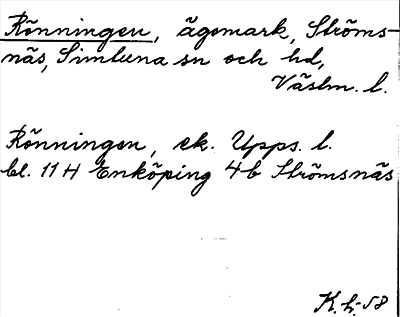 Rönningen, ägomark, Ströms-
näs, Simtuna sn och hd,
Västm. l.
Rönningen, ek. Upps. l.
bl. 11 H Enköping 4b Strömsnäs
K. h. -58